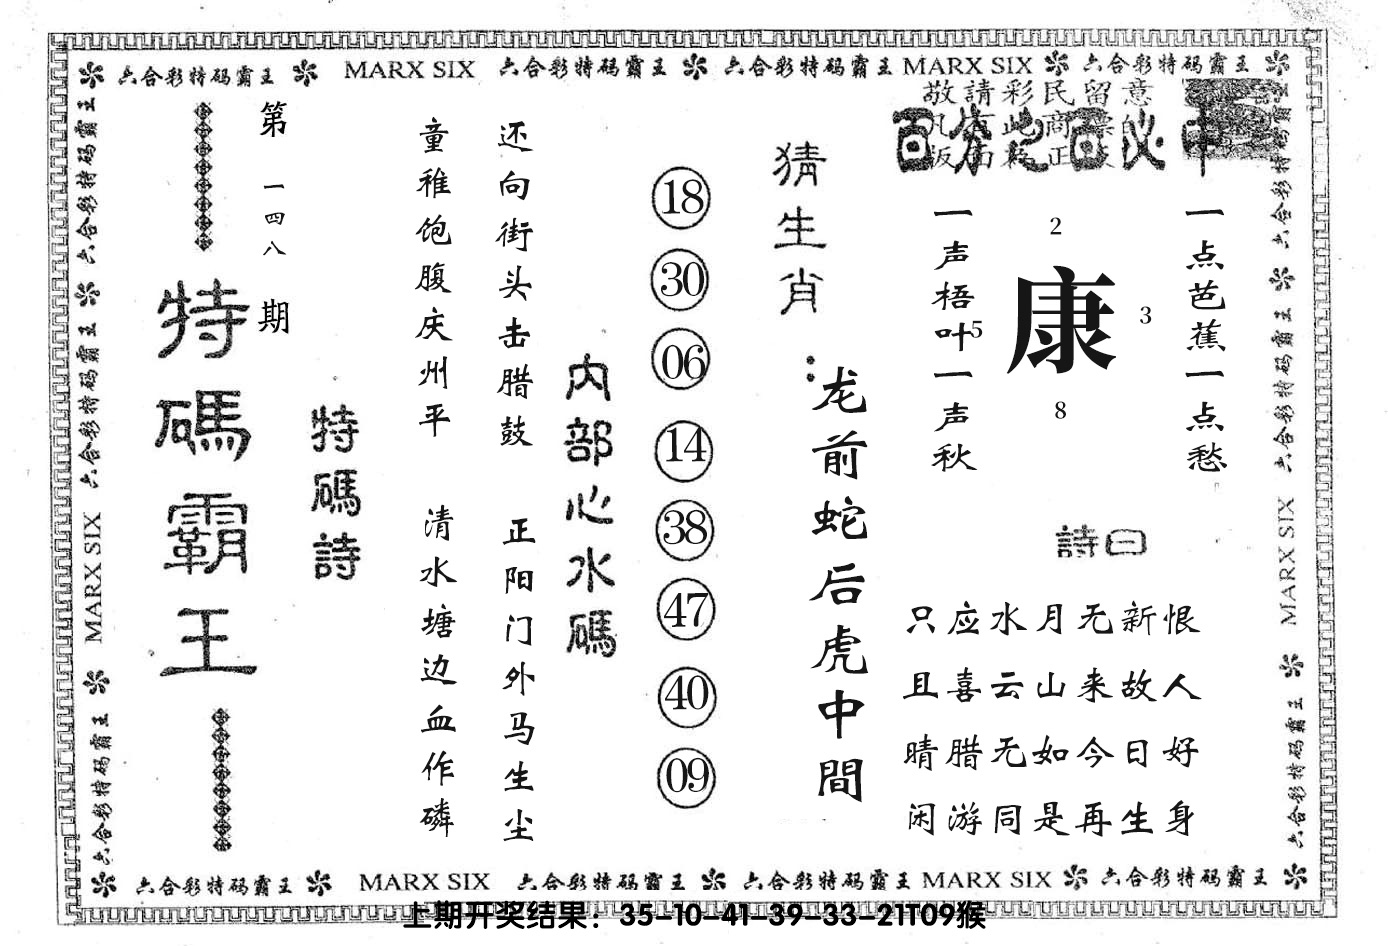 六合彩特码霸王 MARX SIX 六合彩特码霸王 六合彩特码霸王 MARX SIX 六合彩特码霸王
敬請彩民留意
百分之百必中
一点芭蕉一点愁
2
康
5
3
8
一声梧叶一声秋
詩曰
只应水月无新恨
且喜云山来故人
晴腊无如今日好
闲游同是再生身
猜生肖：
龙前蛇后虎中間
18
30
06
14
38
47
40
09
内部心水碼
还向街头击腊鼓
正阳门外马生尘
童稚饱腹庆州平
清水塘边血作磷
特碼詩
第一四八期
特碼霸王
六合彩特码霸王 六合彩特码霸王 MARX SIX 六合彩特码霸王
六合彩特码霸王 六合彩特码霸王 MARX SIX 六合彩特码霸王
六合彩特码霸王 MARX SIX 六合彩特码霸王 六合彩特码霸王 MARX SIX 六合彩特码霸王
上期开奖结果：35-10-41-39-33-21T09猴